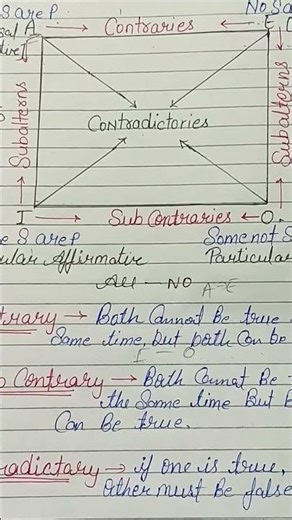 S are P No Sa
A → Contraries ← E
Subalterns Contradictories Subalterns
I → Sub Contraries ← O.
S are P Some not S
ular Affirmative Particular
All — No A-E
trary → Both Cannot Be true
Same time, But both Can be
I - O
Contrary → Both Cannot Be
the Same time But
Can Be true.
radictary → if one is true,
other must be false